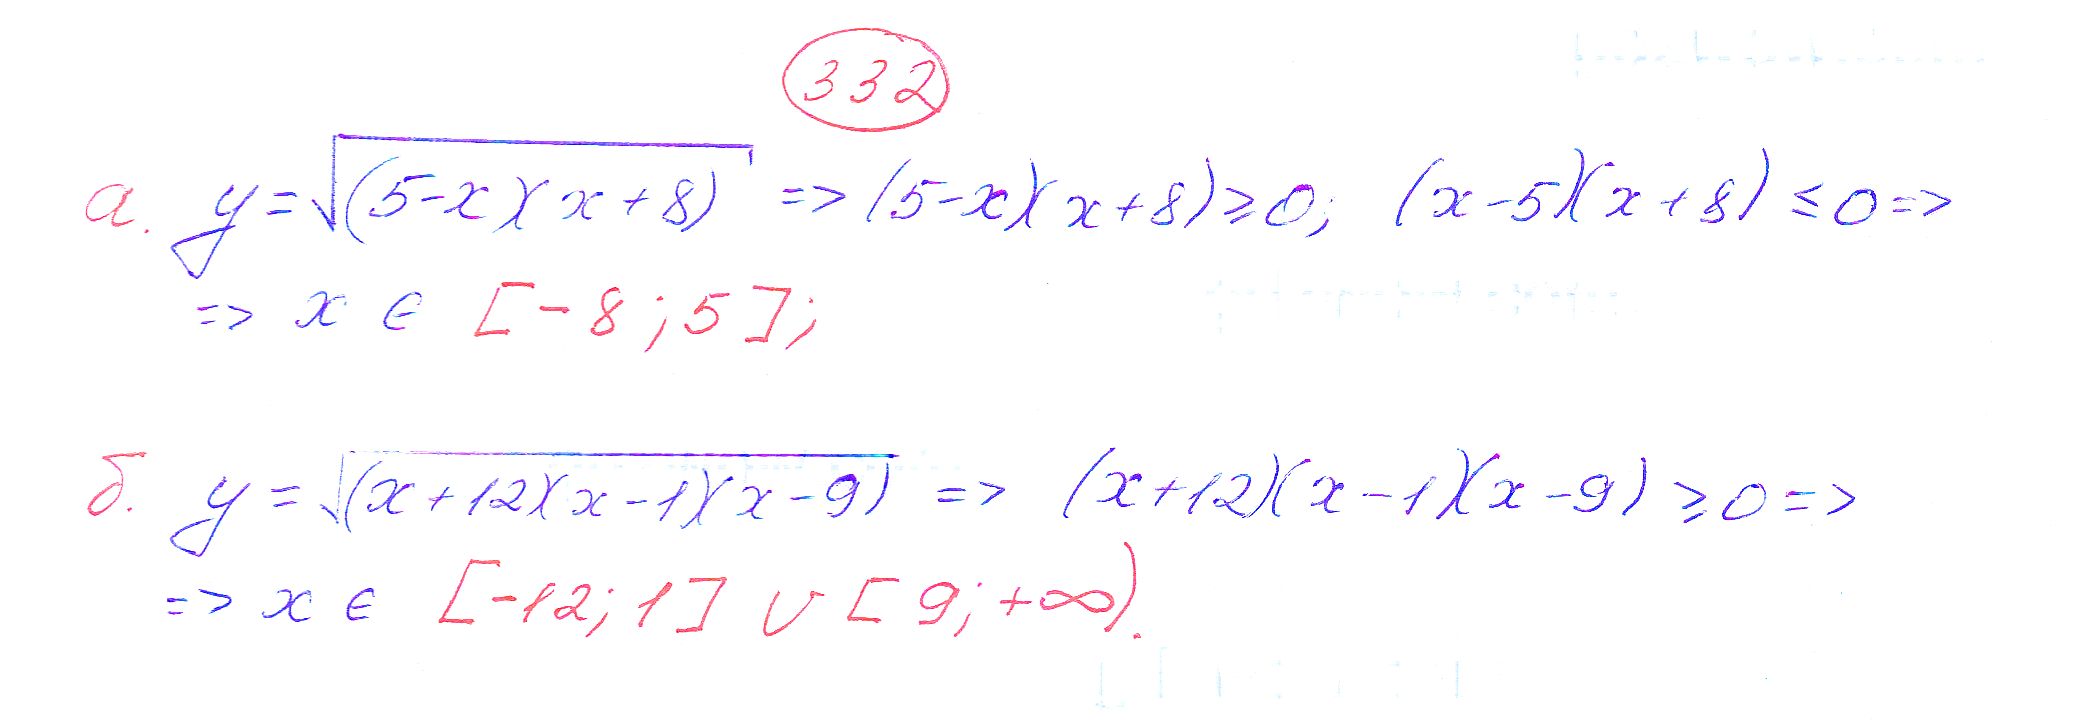 332
а. y = √(5-x)(x+8) => (5-x)(x+8) ≥ 0; (x-5)(x+8) ≤ 0 =>
=> x ∈ [-8; 5];
б. y = √(x+12)(x-1)(x-9) => (x+12)(x-1)(x-9) ≥ 0 =>
=> x ∈ [-12; 1] ∪ [9; +∞).